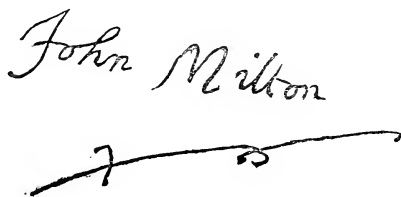 John Milton